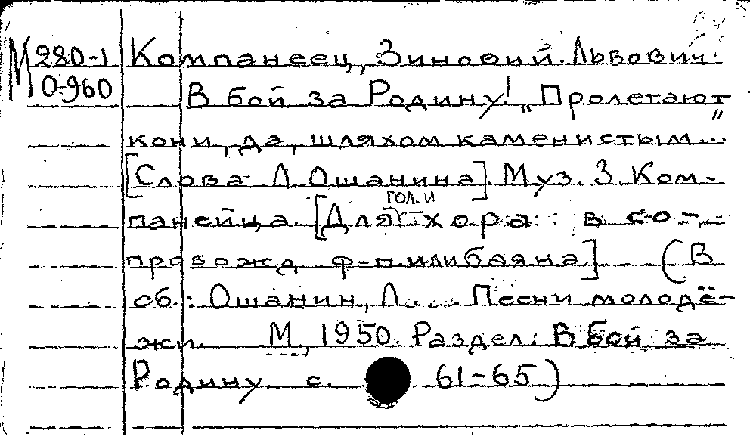 М 280-1 Компанеец, Зиновий Львович.
0-960 В бой за Родину! „Пролетают
кони, да, шляхом каменистым..."
[Слова Л. Ошанина]. Муз. З. Ком-
панейца. [Для гол. и хора: в со-
провожд. ф-п. или баяна] (В
сб.: Ошанин, Л.... Песни молодё-
жи. М., 1950. Раздел: В бой за
Родину с. 61-65)